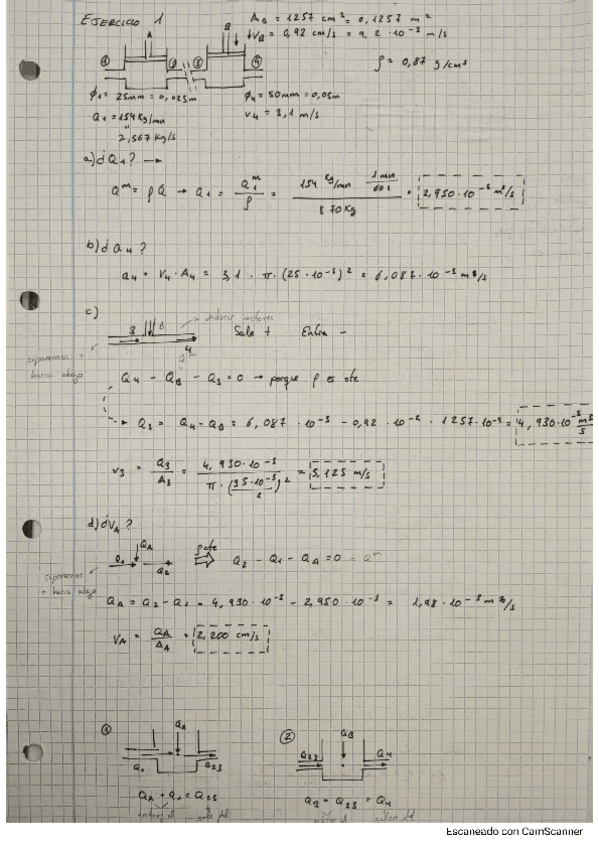 EJERCICIO 1
A_B = 1257 cm² = 0,1257 m²
↓V_B = 0,92 cm/s = 9,2 · 10⁻³ m/s
A
B
ρ = 0,87 g/cm³
① ② ③ ④
ϕ₁ = 25mm = 0,025m
ϕ₄ = 50mm = 0,05m
Q₁ = 154 Kg/mn
v₄ = 3,1 m/s
2,567 Kg/s
a) ¿Q₁? →
Q^m = ρ Q → Q₁ = Q₁^m / ρ = 154 Kg/mn · 1mn/60s / 870 Kg = 2,950 · 10⁻³ m³/s
b) ¿Q₄?
Q₄ = V₄ · A₄ = 3,1 · π · (25 · 10⁻³)² = 6,087 · 10⁻³ m³/s
c)
3 B 4
Sale + Entra -
suponemos +
hacia abajo
Q₄ - Q_B - Q₃ = 0 → porque ρ es cte
Q₃ = Q₄ - Q_B = 6,087 · 10⁻³ - 0,92 · 10⁻² · 1257 · 10⁻⁴ = 4,930 · 10⁻³ m³/s
v₃ = Q₃ / A₃ = 4,930 · 10⁻³ / π · (35 · 10⁻³ / 2)² = 5,125 m/s
d) ¿V_A?
Q₁ Q_A Q₂ ρ cte ⇒ Q₂ - Q₁ - Q_A = 0 = Q^m
suponemos
+ hacia abajo
Q_A = Q₂ - Q₁ = 4,930 · 10⁻³ - 2,950 · 10⁻³ = 1,98 · 10⁻³ m³/s
V_A = Q_A / A_A = 2,200 cm/s
① Q_A Q₁ Q₂₃
② Q_B Q₂₃ Q₄
Q_A + Q₁ = Q₂₃
Q_B + Q₂₃ = Q₄
Escaneado con CamScanner